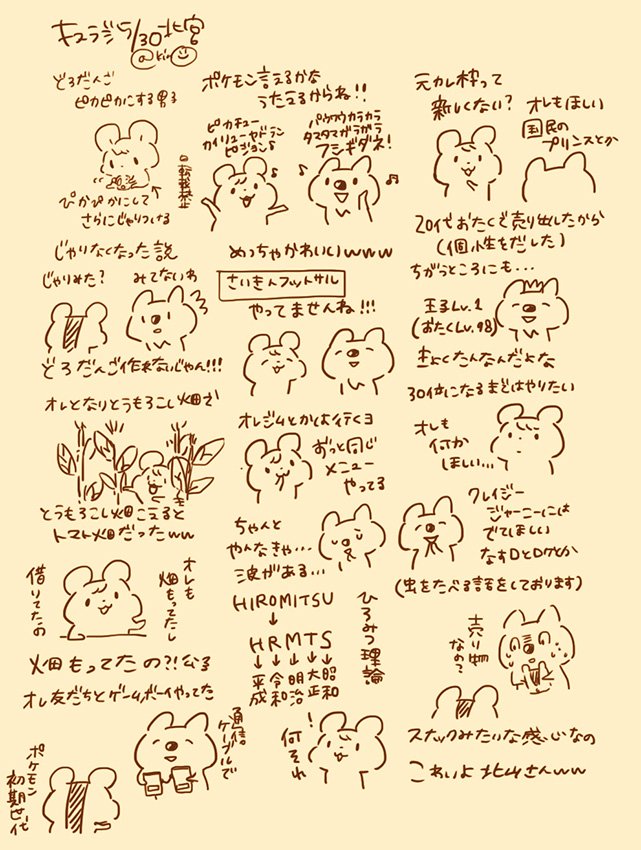 キスラジ5/30北宮
@kin
どろだんご
ピカピカにする男子
ぴかぴかにして
さらにじゃりつける
じゃりなくなった説
じゃりみた?
みてないわ
どろだんご作れないじゃん!!!
オレとなりとうもろこし畑で
とうもろこし畑こえると
トマト畑だったww
オレも
畑もってたし
借りてたの
畑もってたの?!
オレ友だちとゲームボーイやってた
通信
ケーブルで
ポケモン
初期世代
ポケモン言えるかな
うたえるからね!!
ピカチュー
カイリューヤドラン
ピジョン♪
パウワウカラカラ
タスタマガラガラ
フシギダネ!
無断転載禁止
めっちゃかわいいwww
さいきんフットサル
やってませんね!!!
オレジムとかは行くヨ
ずっと同じ
メニュー
やってる
ちゃんと
やんなきゃ...
波がある...
HIROMITSU
↓
HRMTS
↓↓↓↓↓
平成
令和
明治
大正
昭和
ひろみつ理論
!
何それ
元カレ枠って
新しくない?
オレもほしい
国民の
プリンスとか
20代おたくで売り出したから
(個性をだした)
ちがうところにも...
王子Lv.1
(おたくLv.98)
30位になるまではやりたい
オレも
何か
ほしい...
クレイジー
ジャーニーには
でてほしい
なすDとロケとか
(虫をたべる話をしております)
売り物
なの?
スナックみたいな感じなの
こわいよ北山さんww